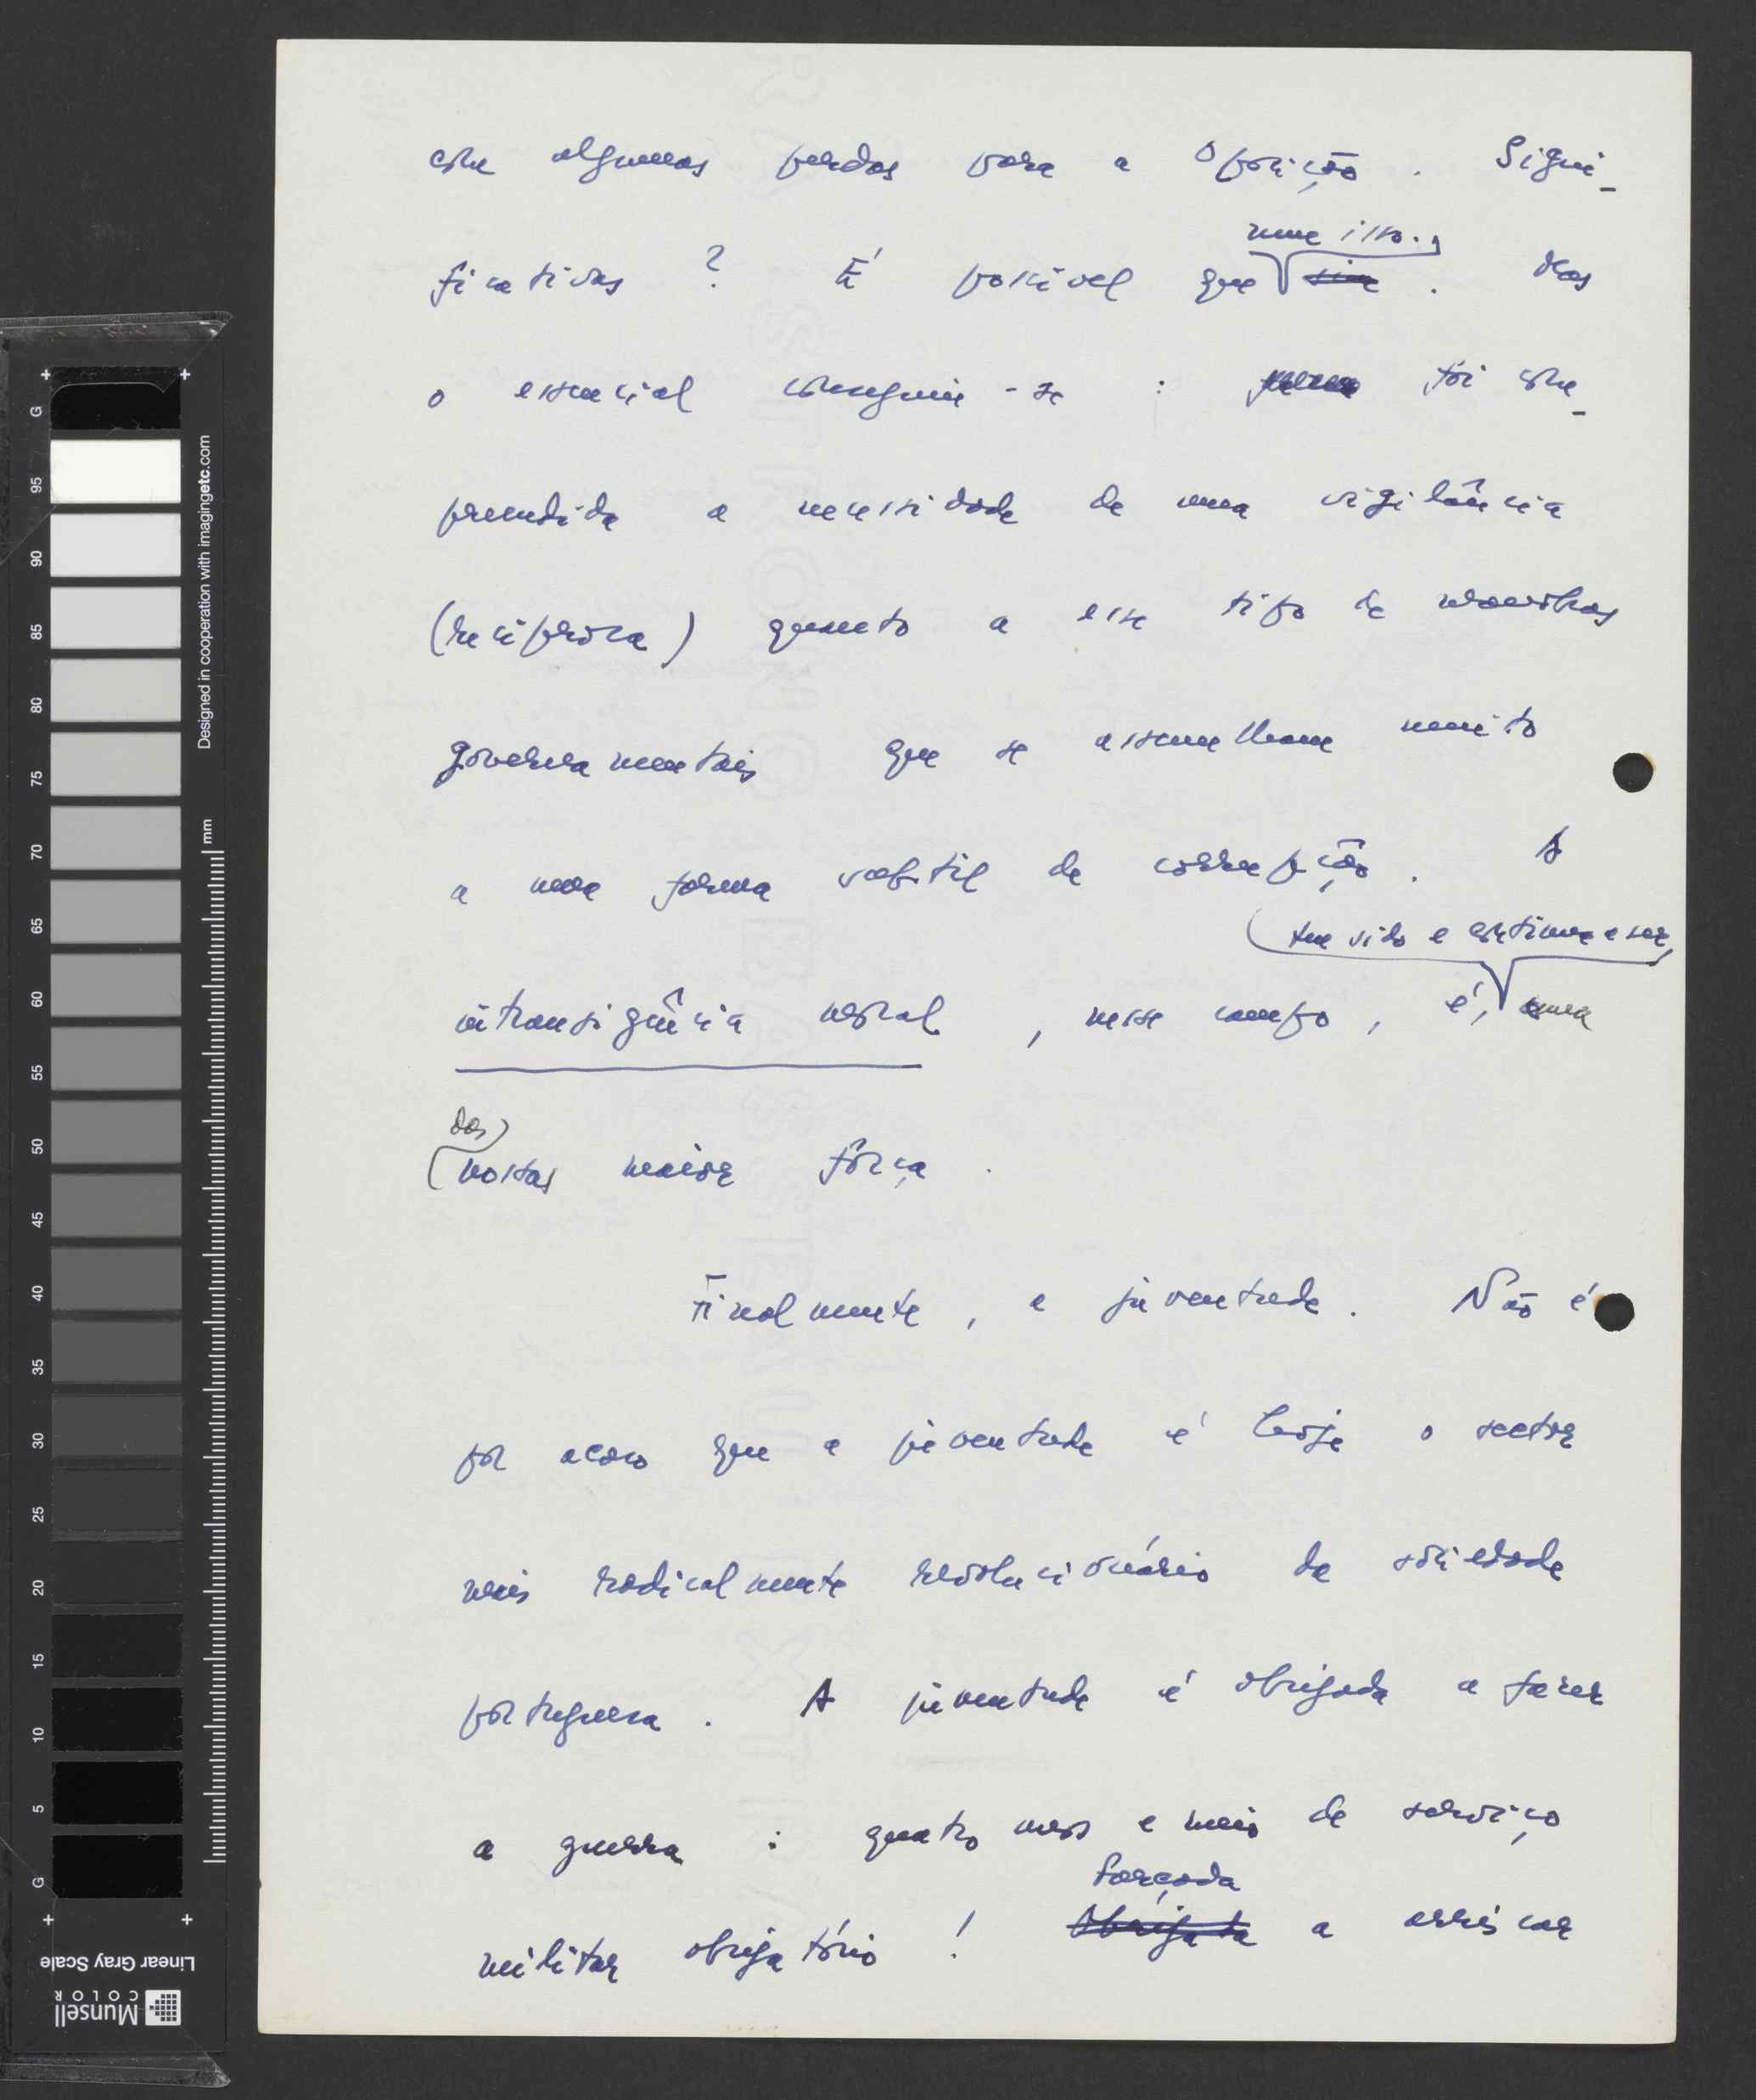 com algumas perdas para a Oposição. Signi-
nem isso.,
ficativas? É possível que sim. Mas
o essencial conseguiu-se: foi com-
preendida a necessidade de uma vigilância
(recíproca) quanto a esse tipo de manobras
governamentais que se assemelham muito
a uma forma subtil de corrupção. A
tem sido e continua a ser,
intransigência moral, nesse campo, é, uma
das
nossas maior fôrça.
Finalmente, a juventude. Não é
por acaso que a juventude é hoje o sector
mais radicalmente revolucionário da sociedade
portuguesa. A juventude é obrigada a fazer
a guerra: quatro anos e meio de serviço
forçada
militar obrigatório! Obrigada a arriscar
G 95 90 85 80 75 70 65 60 55 50 45 40 35 30 25 20 15 10 5 G
Designed in cooperation with imagingetc.com
mm
Linear Gray Scale
Munsell
COLOR